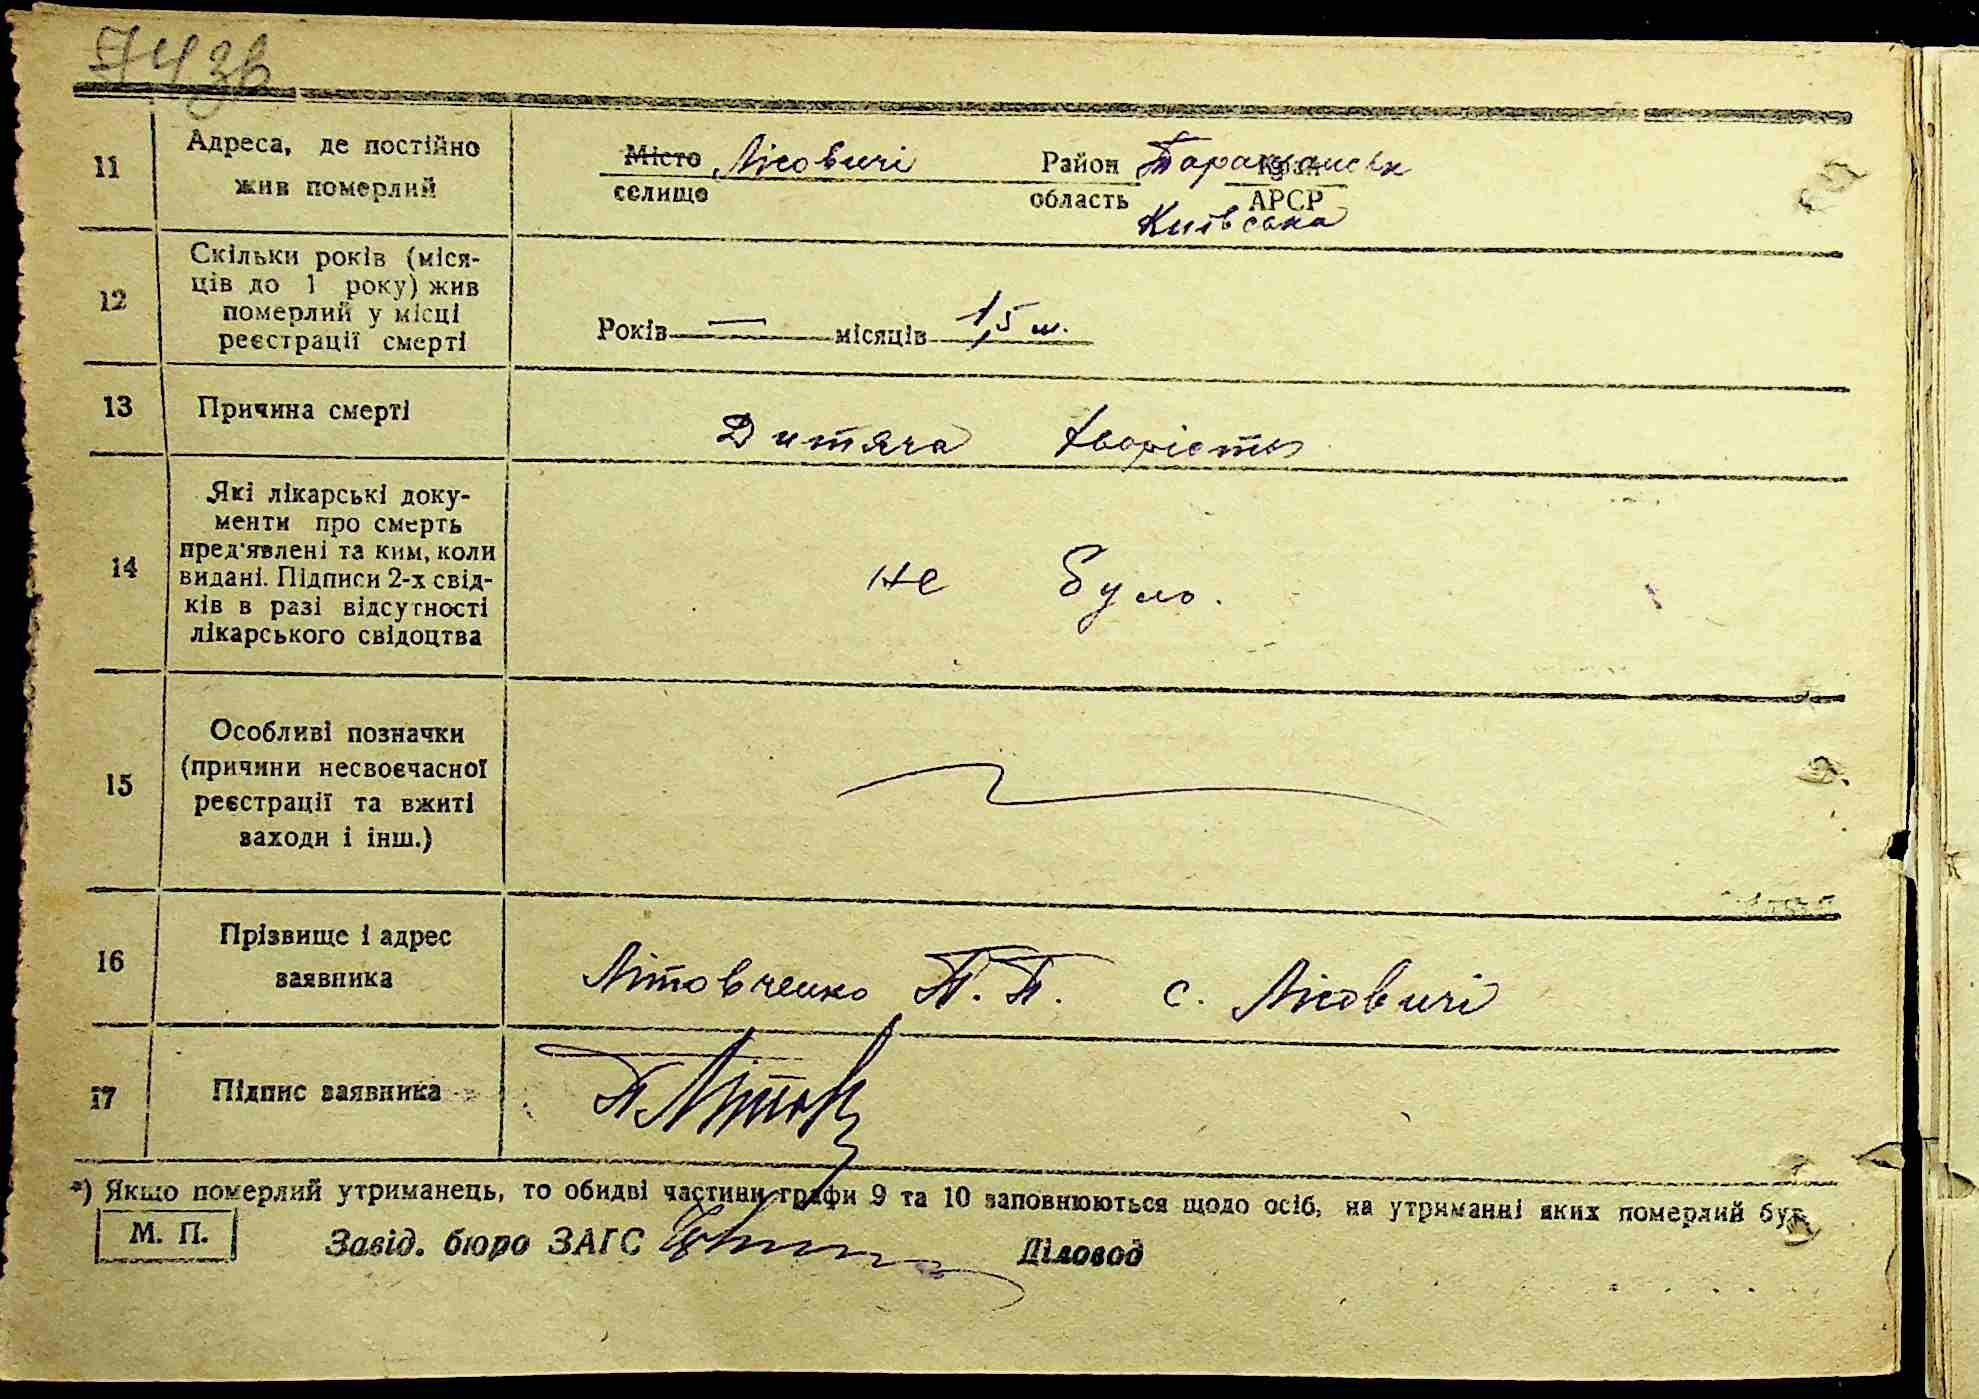 574 зв
11
Адреса, де постійно
жив померлий
Місто Лісовичі Район Таращанськ Край
селище область АРСР
Київська
12
Скільки років (міся-
ців до 1 року) жив
померлий у місці
реєстрації смерті
Років — місяців 1,5 м.
13
Причина смерті
Дитяча хворість
14
Які лікарські доку-
менти про смерть
пред'явлені та ким, коли
видані. Підписи 2-х свід-
ків в разі відсутності
лікарського свідоцтва
не було.
15
Особливі позначки
(причини несвоєчасної
реєстрації та вжиті
заходи і інш.)
16
Прізвище і адрес
заявника
Літовченко П. П. с. Лісовичі
17
Підпис заявника
П Літов
*) Якщо померлий утриманець, то обидві частини графи 9 та 10 заповнюються щодо осіб, на утриманні яких померлий був
М. П.
Завід. бюро ЗАГС Діловод